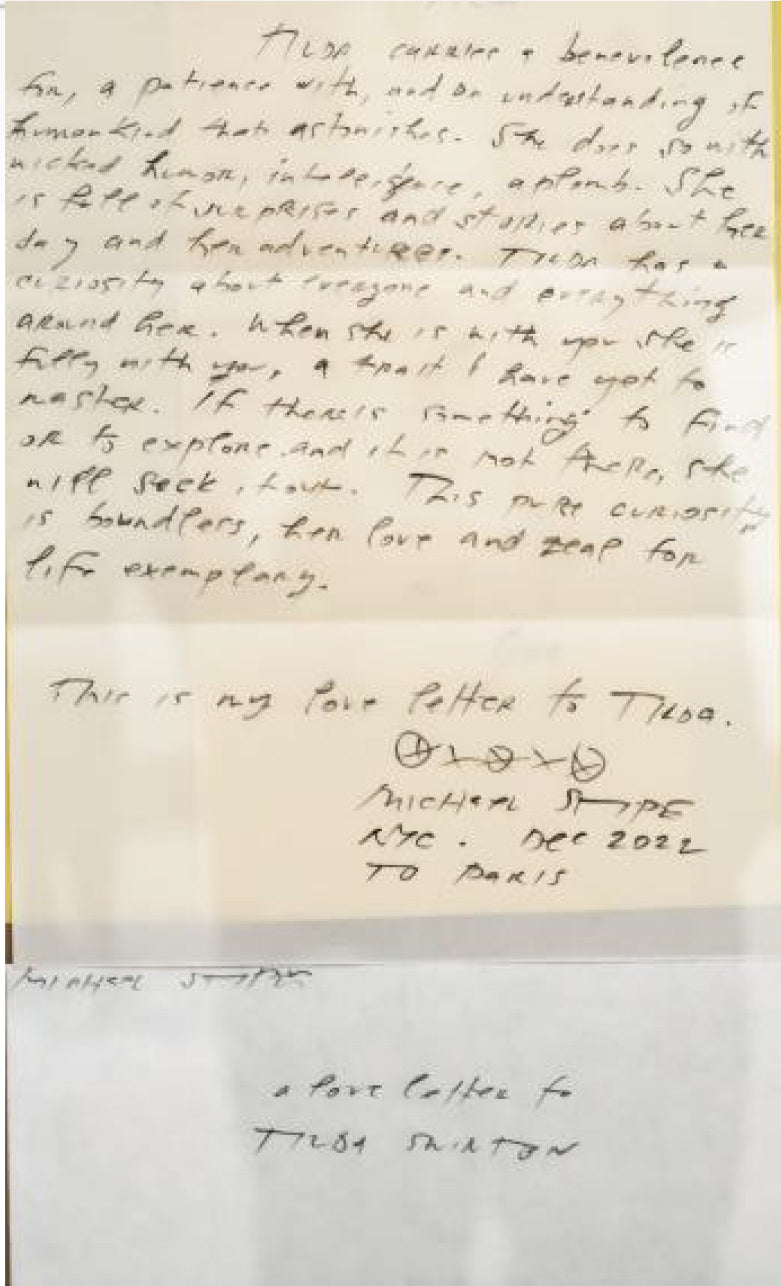 TILDA carries a benevolence
for, a patience with, and an understanding of
humankind that astonishes. She does so with
wicked humor, intelligence, aplomb. She
is full of surprises and stories about her
day and her adventures. TILDA has a
curiosity about everyone and everything
around her. When she is with you she is
fully with you, a trait I have yet to
master. If there is something to find
or to explore, and it is not there, she
will seek it out. This pure curiosity
is boundless, her love and zeal for
life exemplary.
This is my love letter to TILDA.
XOXOX
MICHAEL STIPE
NYC. Dec 2022
TO PARIS
MICHAEL STIPE
a love letter to
TILDA SWINTON